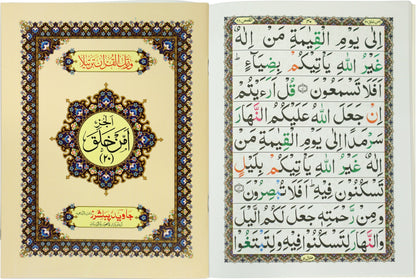 ورتل القرآن ترتيلا
الجزء
امن خلق
(٢٠)
جاويد مبشر
اِلٰى يَوْمِ الْقِيٰمَةِ مَنْ اِلٰهٌ
غَيْرُ اللّٰهِ يَاْتِيْكُمْ بِضِيَآءٍ ؕ
اَفَلَا تَسْمَعُوْنَ قُلْ اَرَءَيْتُمْ
اِنْ جَعَلَ اللّٰهُ عَلَيْكُمُ النَّهَارَ
سَرْمَدًا اِلٰى يَوْمِ الْقِيٰمَةِ مَنْ
اِلٰهٌ غَيْرُ اللّٰهِ يَاْتِيْكُمْ بِلَيْلٍ
تَسْكُنُوْنَ فِيْهِ ؕ اَفَلَا تُبْصِرُوْنَ
وَمِنْ رَّحْمَتِهٖ جَعَلَ لَكُمُ الَّيْلَ
وَالنَّهَارَ لِتَسْكُنُوْا فِيْهِ وَلِتَبْتَغُوْا